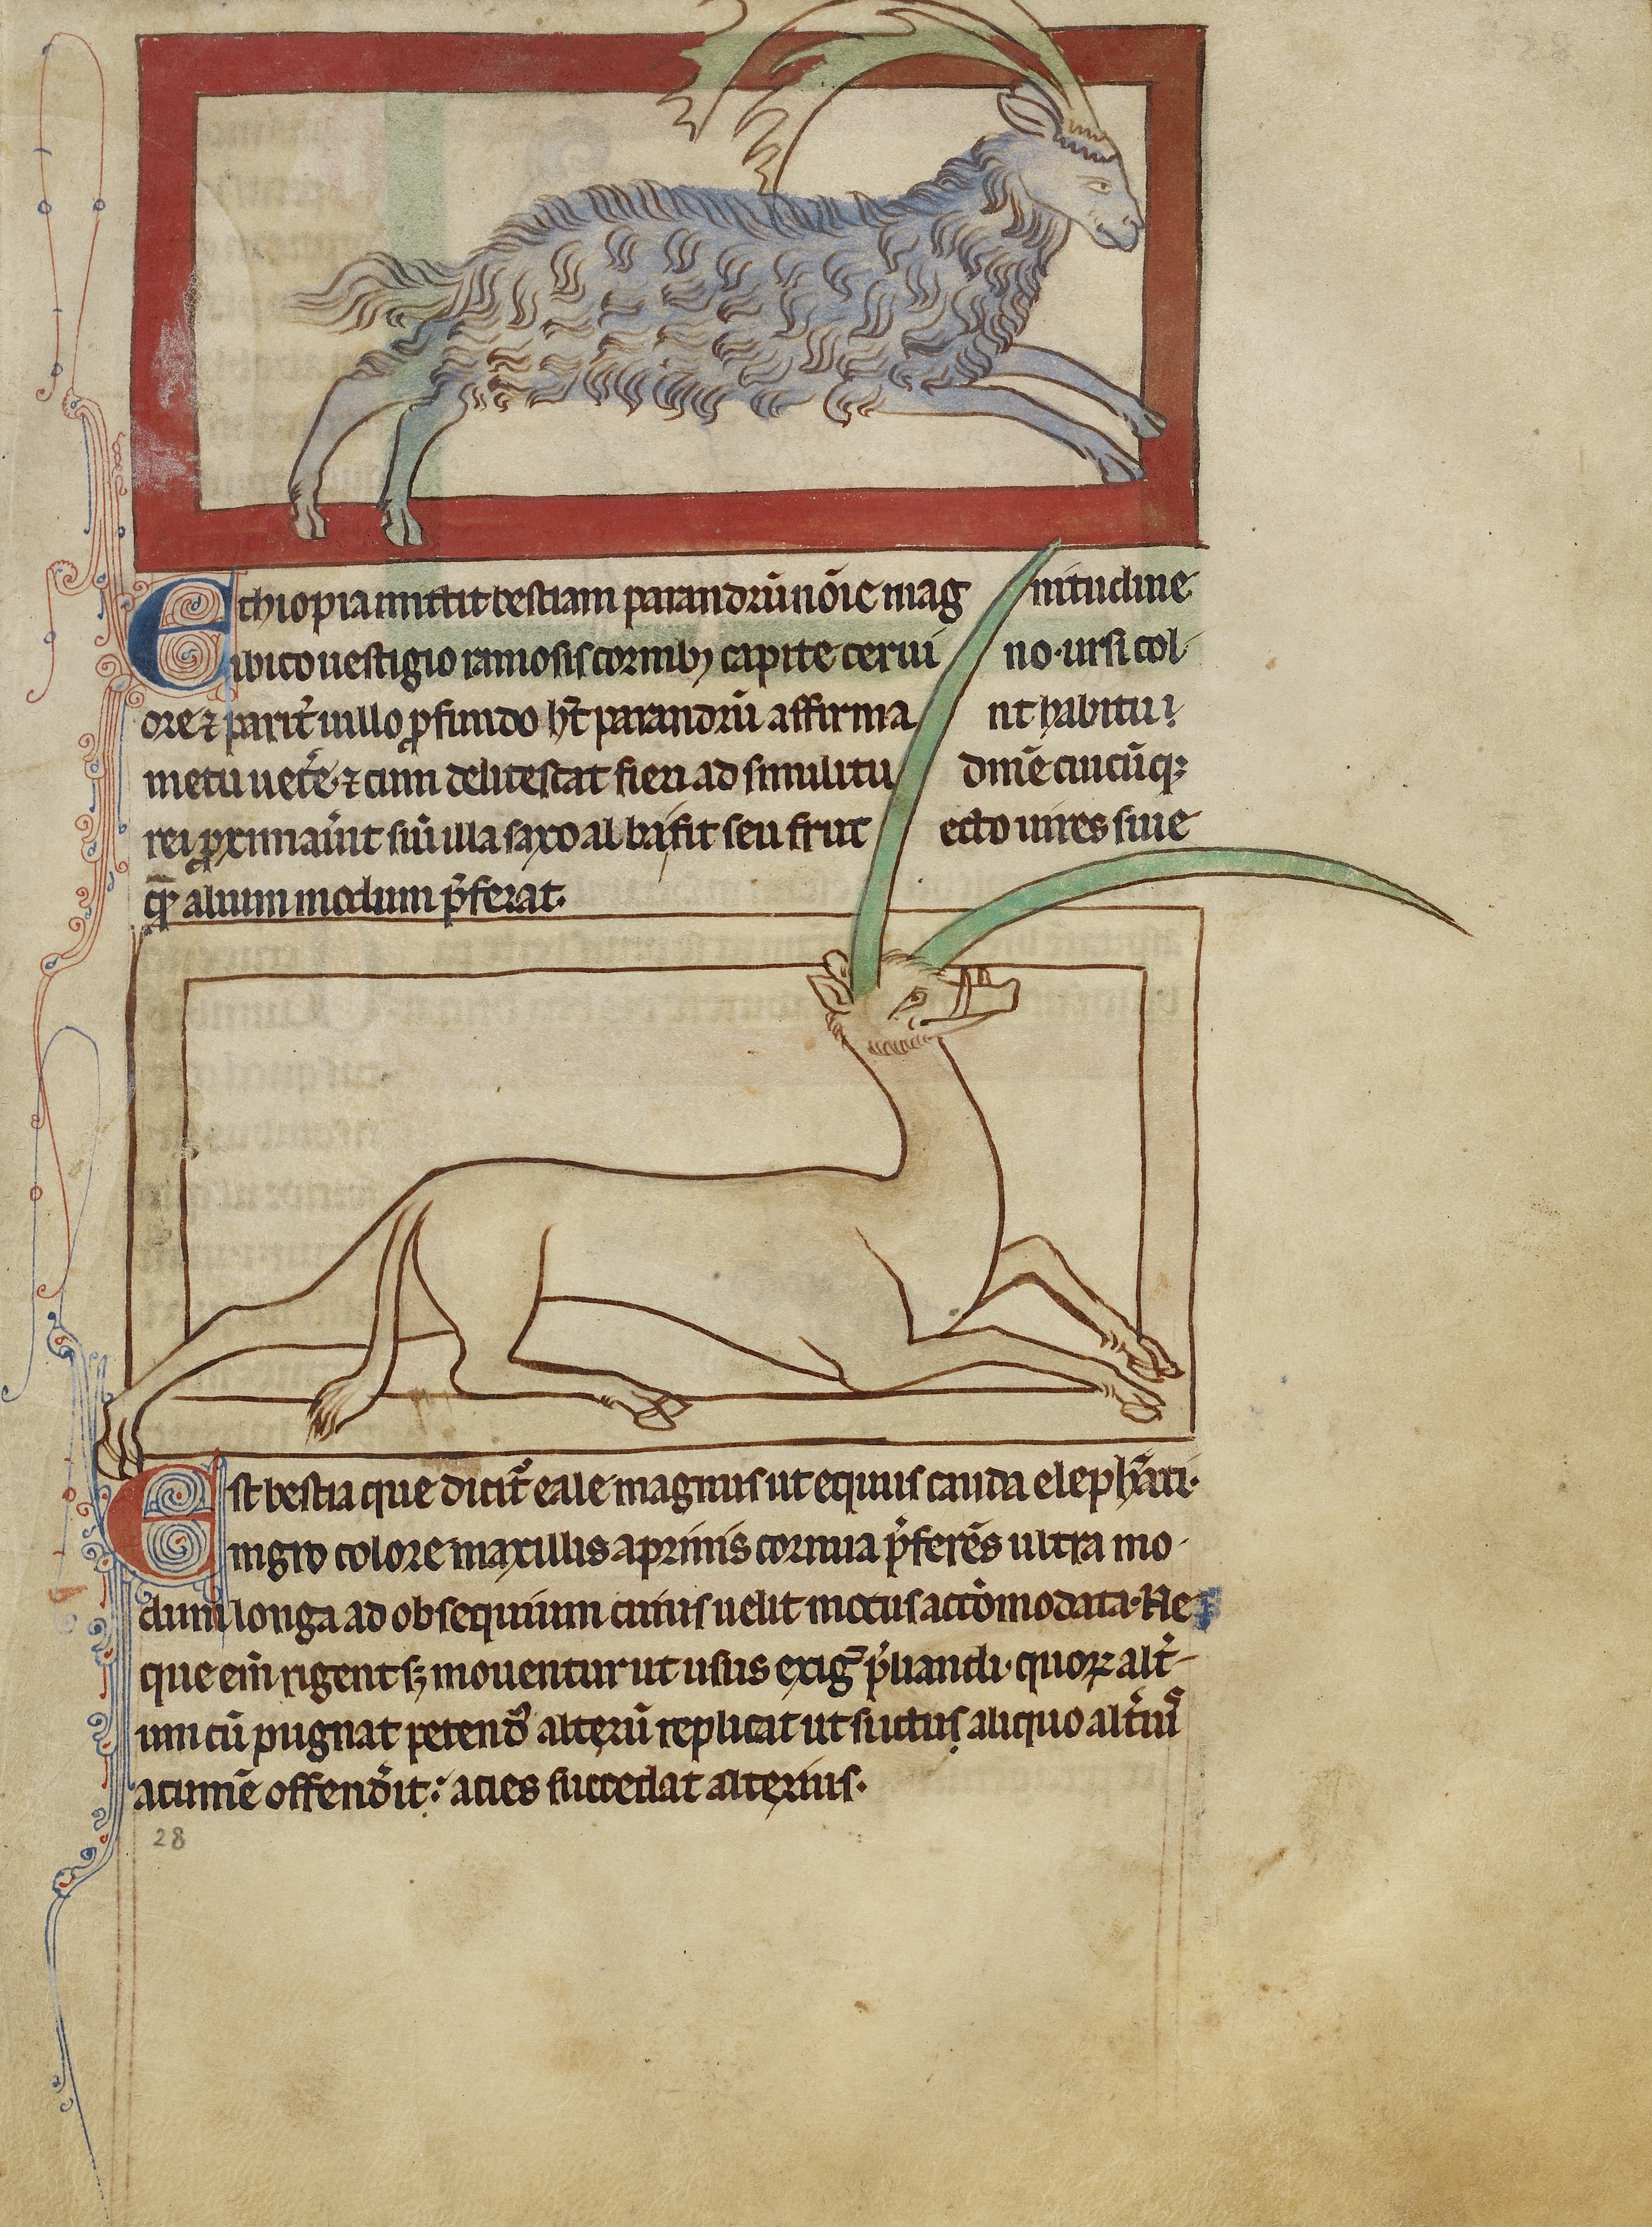 Ethiopia mittit bestiam parandrū nōīe mag nitudine
ibico uestigio ramosis cornibꝫ capite cerui no· ursi col-
ore ⁊ parit̄ uillo ꝓfundo ht̄ parandrū affirma nt habitū
metu ūtẽ· ⁊ cum delitescat fieri ad similitu dinē cuicūqꝫ
rei ꝓximau̾it siū illa saxo alba sit seu frut ecto uires siue
alium modum p̾ferat·
Est bestia que dicit᷒ eale magnus ut equus cauda elephāti·
nigro colore maxillis aprinis cornua p̾ferēs ultra mo-
dum longa ad obsequium cuius uelit motus accōmodata· Ne
que em̄ rigent sꝫ mouentur ut usus exiḡ p̾liandi· quoꝝ alt̾-
um cū pugnat petend̾ alterū replicat ut si ictus aliquo alt̾iu᷒
acumē offend̾it: acies succedat alterius·
28